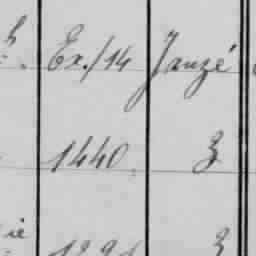 h Ex./14 Janzé
1440 3
ie 3